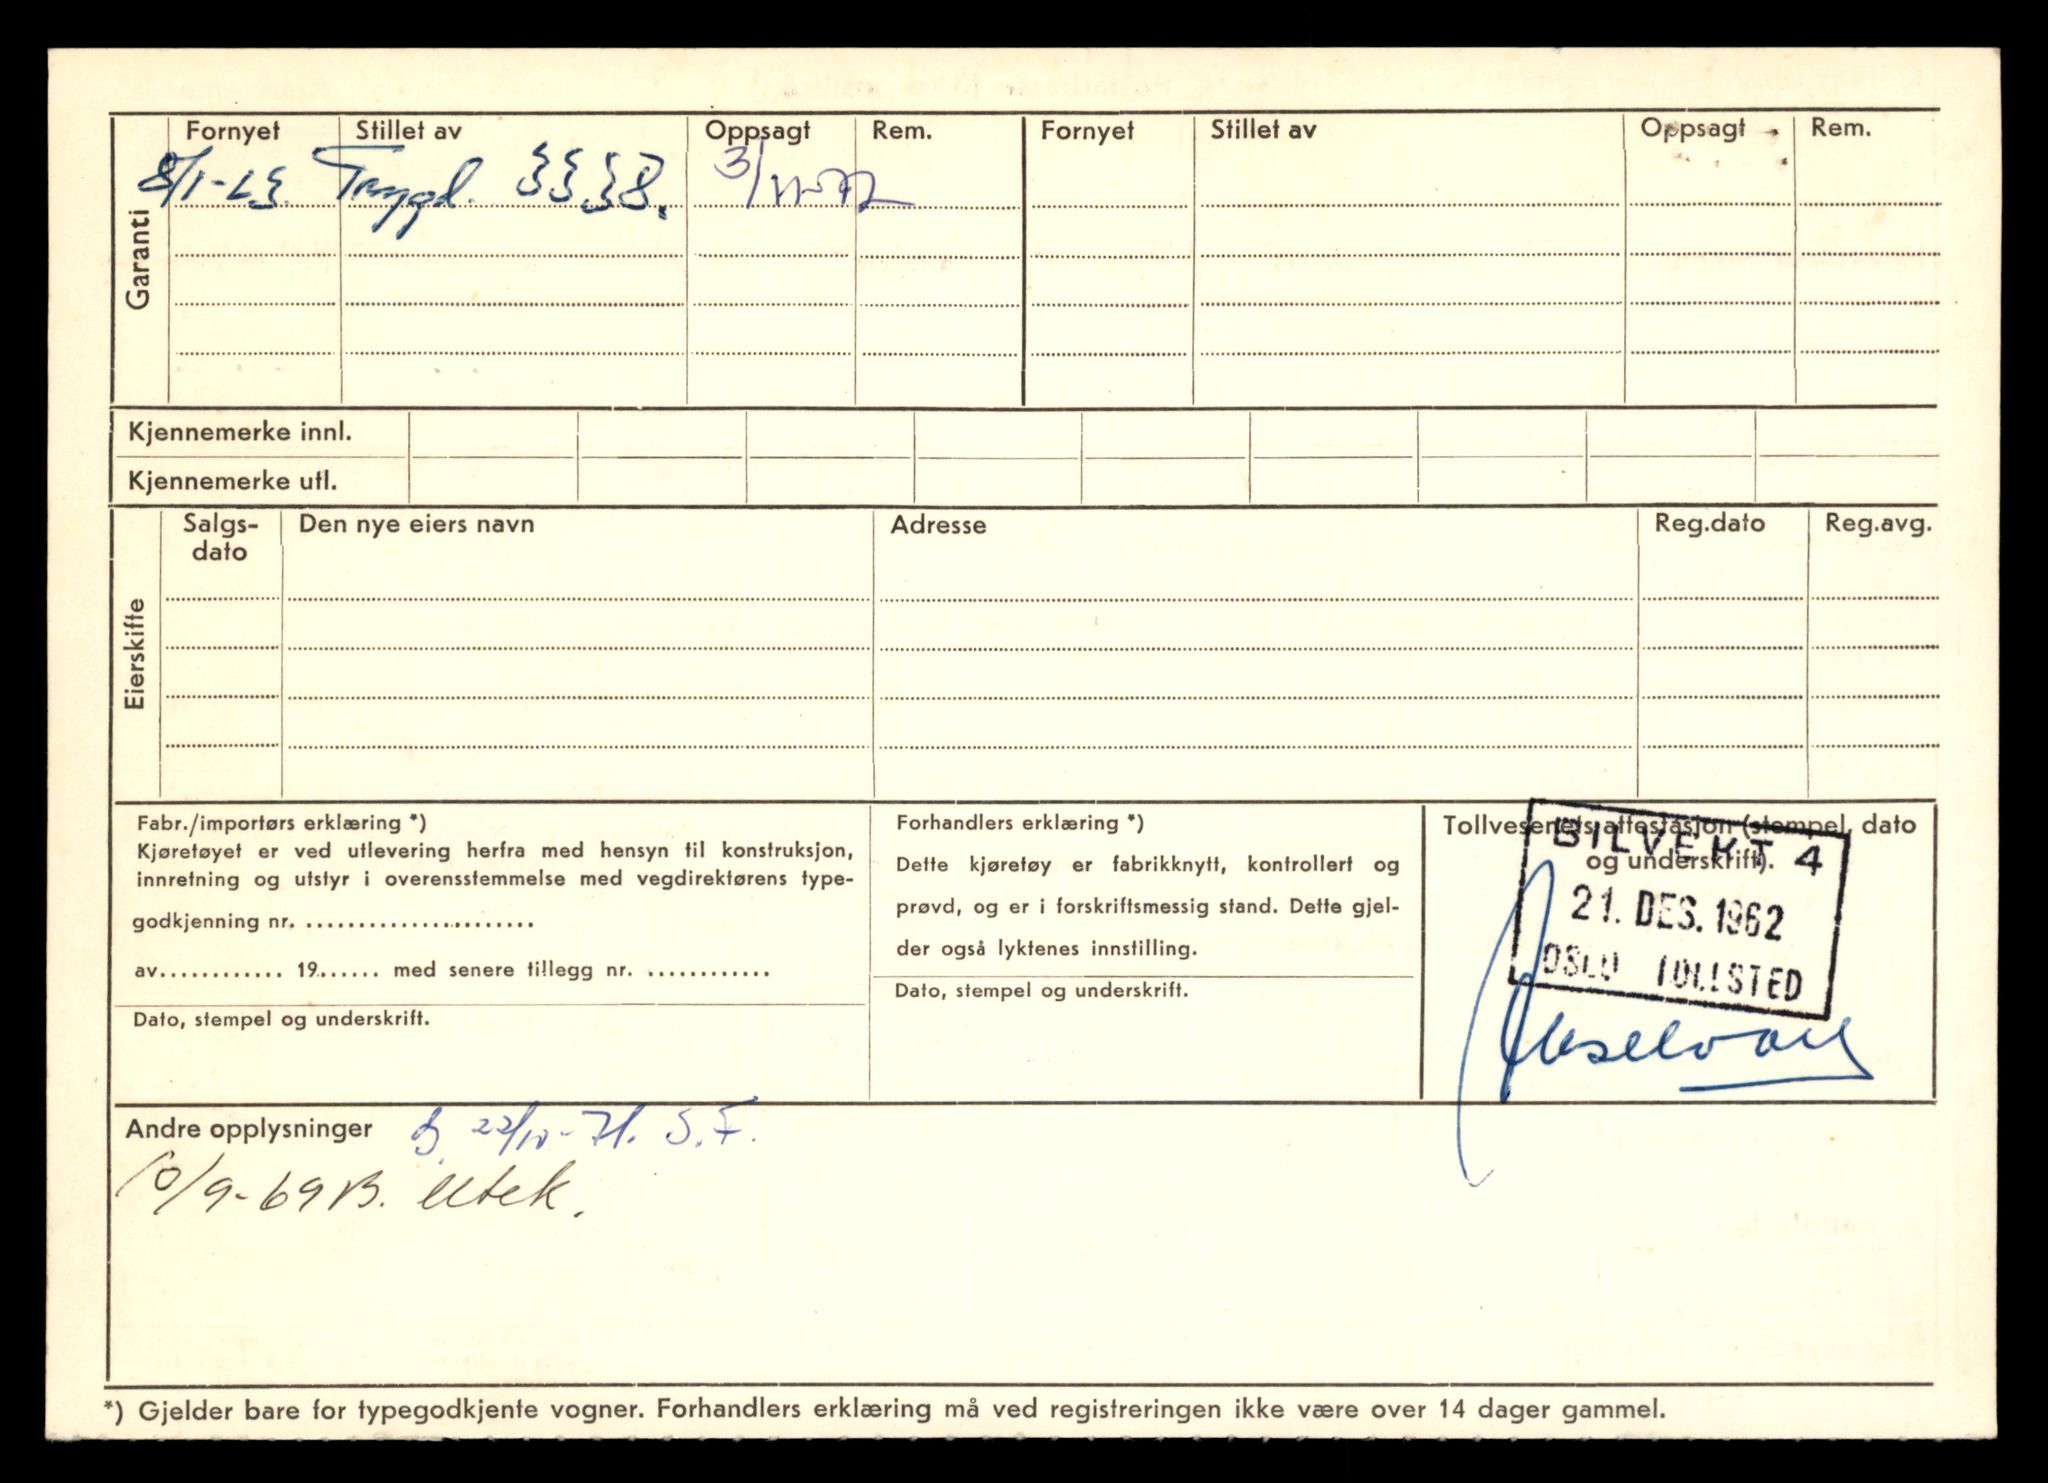 Garanti
Fornyet Stillet av Oppsagt Rem. Fornyet Stillet av Oppsagt Rem.
8/1-63. Trygd. 3338. 3/11-72
Kjennemerke innl.
Kjennemerke utl.
Eierskifte
Salgs-dato Den nye eiers navn Adresse Reg.dato Reg.avg.
Fabr./importørs erklæring *)
Kjøretøyet er ved utlevering herfra med hensyn til konstruksjon,
innretning og utstyr i overensstemmelse med vegdirektørens type-
godkjenning nr. ......................
av............ 19...... med senere tillegg nr. ............
Dato, stempel og underskrift.
Forhandlers erklæring *)
Dette kjøretøy er fabrikknytt, kontrollert og
prøvd, og er i forskriftsmessig stand. Dette gjel-
der også lyktenes innstilling.
Dato, stempel og underskrift.
Tollvesenets attestasjon (stempel, dato
og underskrift).
BILVEKT 4
21. DES. 1962
OSLO TOLLSTED
Andre opplysninger
B. 22/10-71. S.F.
10/9-69 B. Utek.
*) Gjelder bare for typegodkjente vogner. Forhandlers erklæring må ved registreringen ikke være over 14 dager gammel.